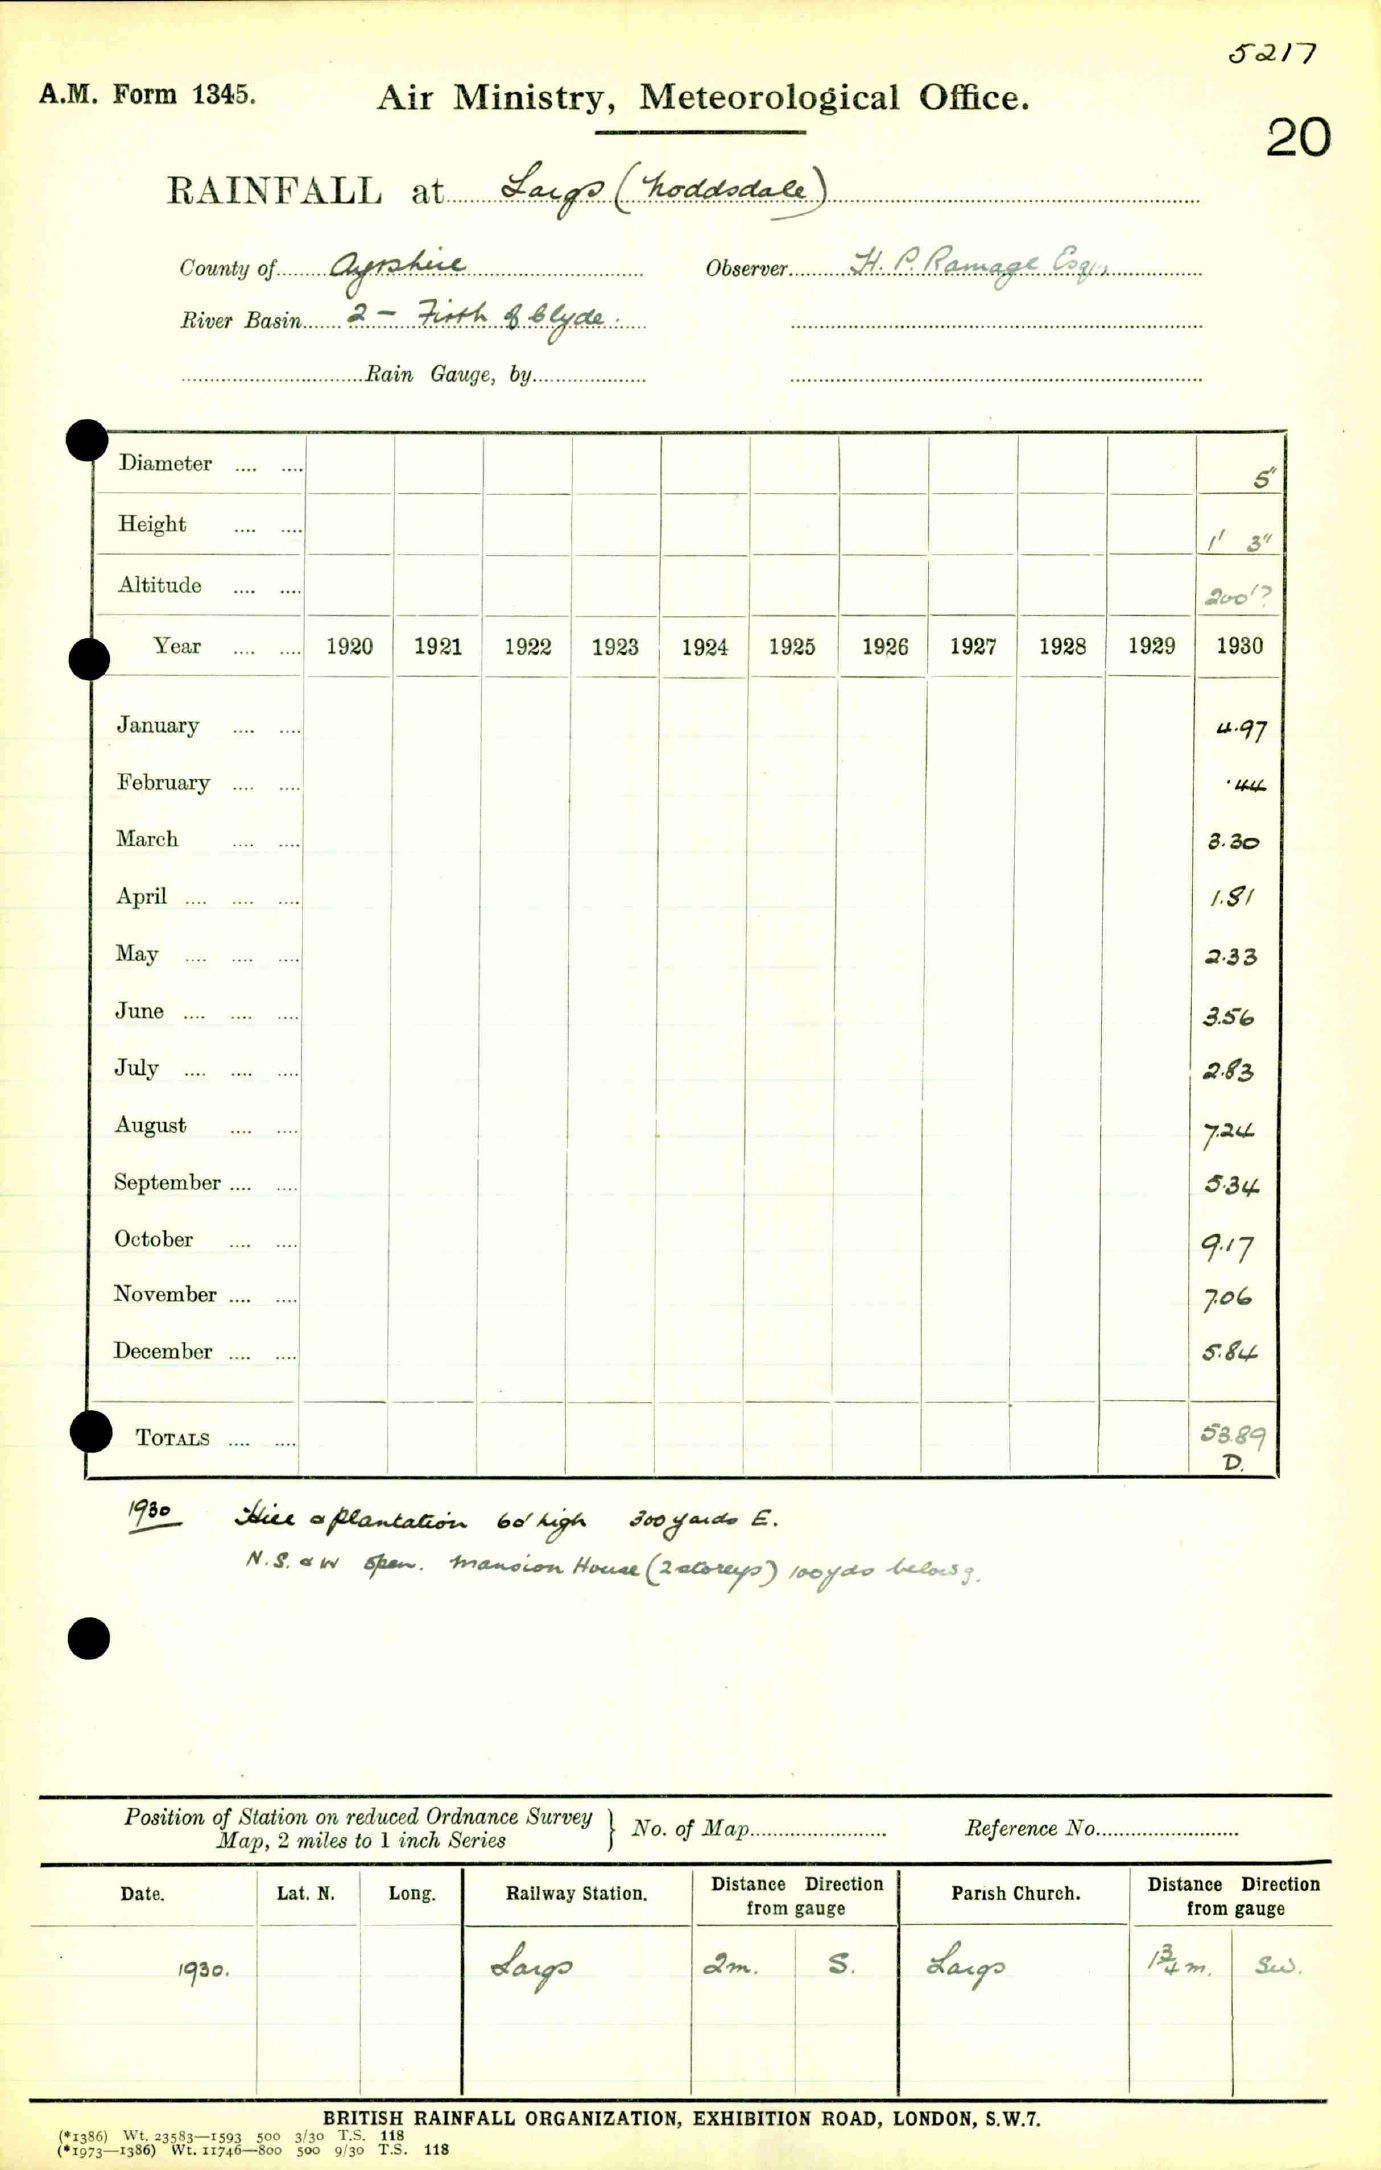 5217
A.M. Form 1345.
Air Ministry, Meteorological Office.
20
RAINFALL at Largs (Noddsdale)
County of Ayrshire Observer H. P. Ramage Esq.,
River Basin 2 - Firth of Clyde.
Rain Gauge, by
Diameter .... .... 5"
Height .... .... 1' 3"
Altitude .... .... 200'?
Year .... .... 1920 1921 1922 1923 1924 1925 1926 1927 1928 1929 1930
January .... .... 4.97
February .... .... .44
March .... .... 3.30
April .... .... .... 1.81
May .... .... .... 2.33
June .... .... .... 3.56
July .... .... .... 2.83
August .... .... 7.24
September .... .... 5.34
October .... .... 9.17
November .... .... 7.06
December .... .... 5.84
TOTALS .... .... 53.89
D.
1930 Hill & plantation 60' high 300 yards E.
N. S. & W open. Mansion House (2 storeys) 100 yds below g.
Position of Station on reduced Ordnance Survey
Map, 2 miles to 1 inch Series } No. of Map Reference No.
Date. Lat. N. Long. Railway Station. Distance Direction from gauge Parish Church. Distance Direction from gauge
1930. Largs 2m. S. Largs 1¾ m. SW.
BRITISH RAINFALL ORGANIZATION, EXHIBITION ROAD, LONDON, S.W.7.
(*1386) Wt. 23583—1593 500 3/30 T.S. 118
(*1973—1386) Wt. 11746—800 500 9/30 T.S. 118